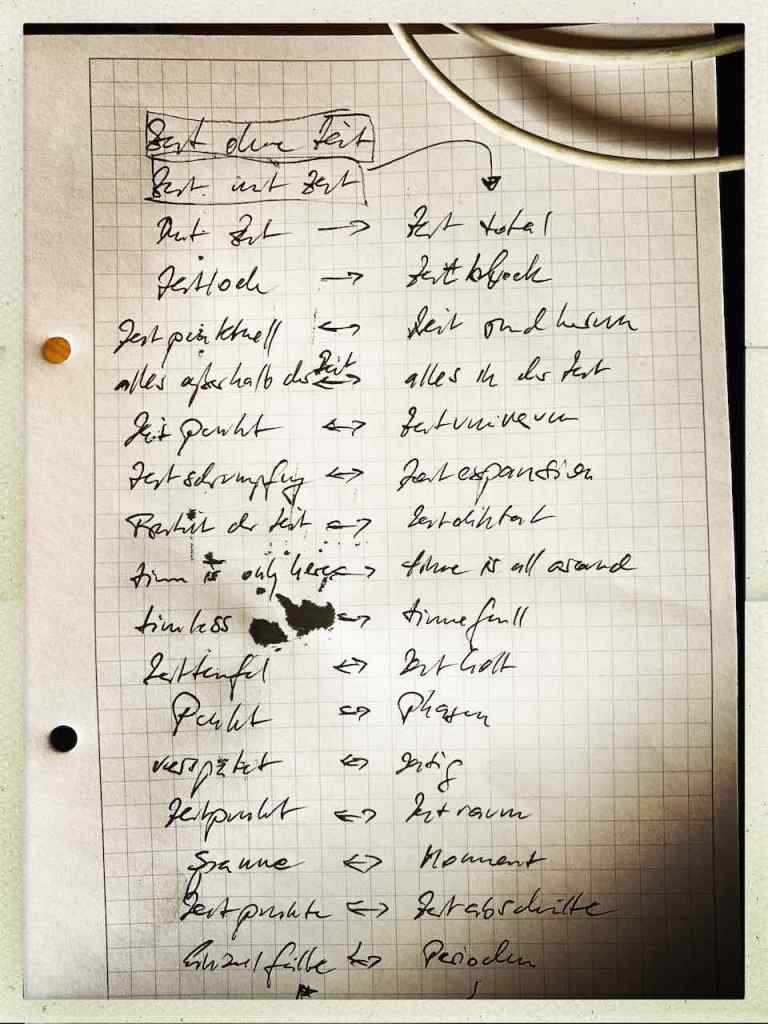 Zeit ohne Zeit
Zeit mit Zeit
Mit Zeit → Zeit total
Zeitloch → Zeitblock
Zeit punktuell ↔ Zeit rundherum
alles außerhalb der Zeit ↔ alles in der Zeit
Zeitpunkt ↔ Zeituniversum
Zeitschrumpfung ↔ Zeitexpansion
der Zeit ↔ Zeitdiktat
time is only here ↔ time is all around
timeless ↔ timefull
Zeitteufel ↔ Zeitgott
Punkt ↔ Phasen
verspätet ↔ zeitig
Zeitpunkt ↔ Zeitraum
Spanne ↔ Moment
Zeitpunkte ↔ Zeitabschnitte
Einzelfälle ↔ Perioden